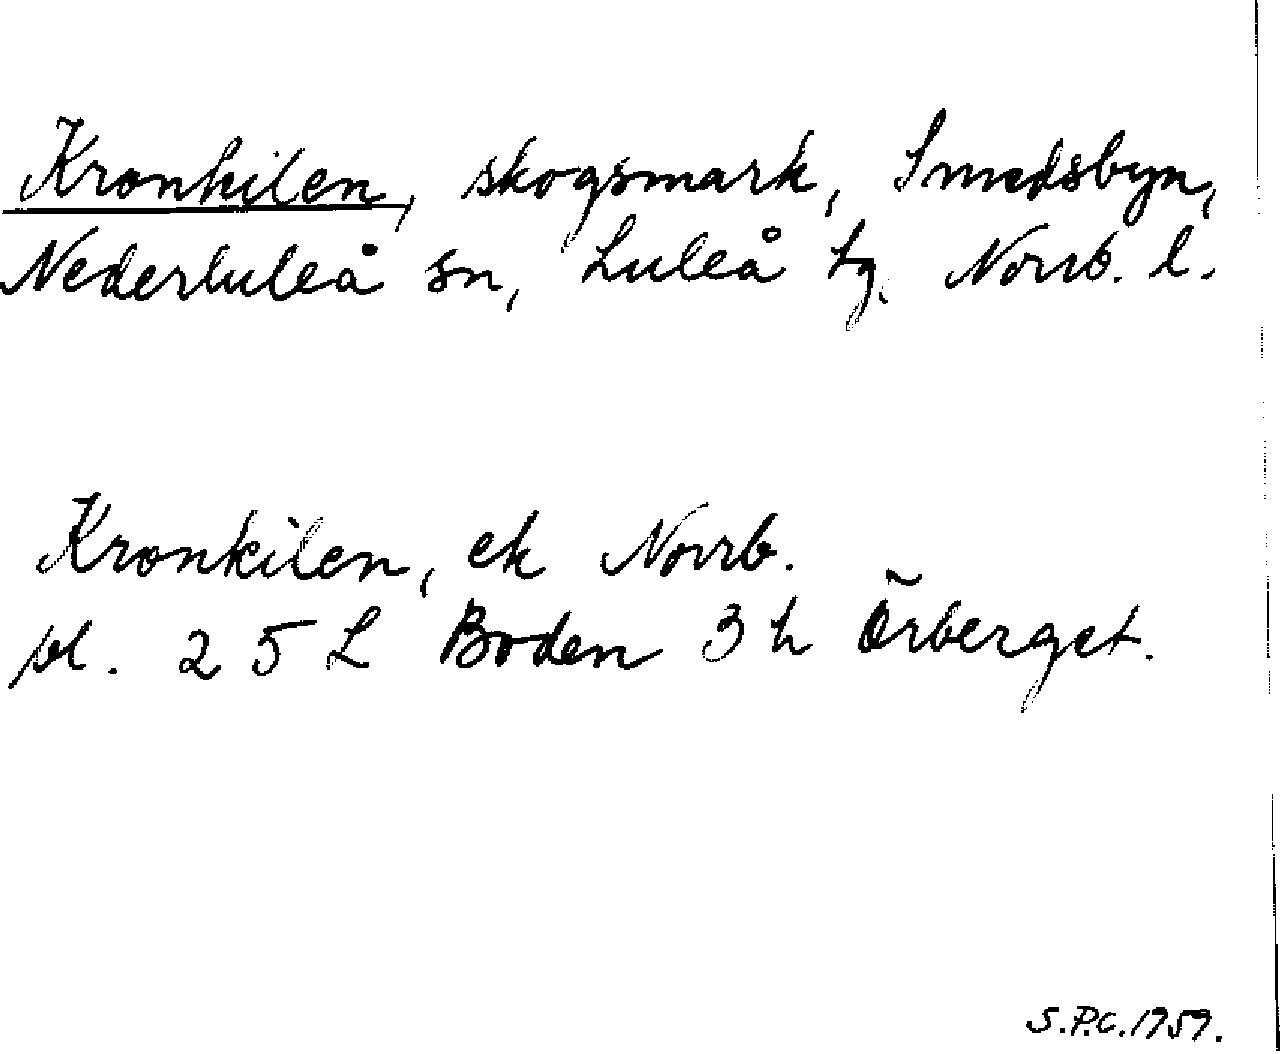 Kronkilen, skogsmark, Smedsbyn,
Nederluleå sn, Luleå tg. Norrb. l.
Kronkilen, ek Norrb.
bl. 25 L Boden 3 h Örberget.
S.P.C. 1959.